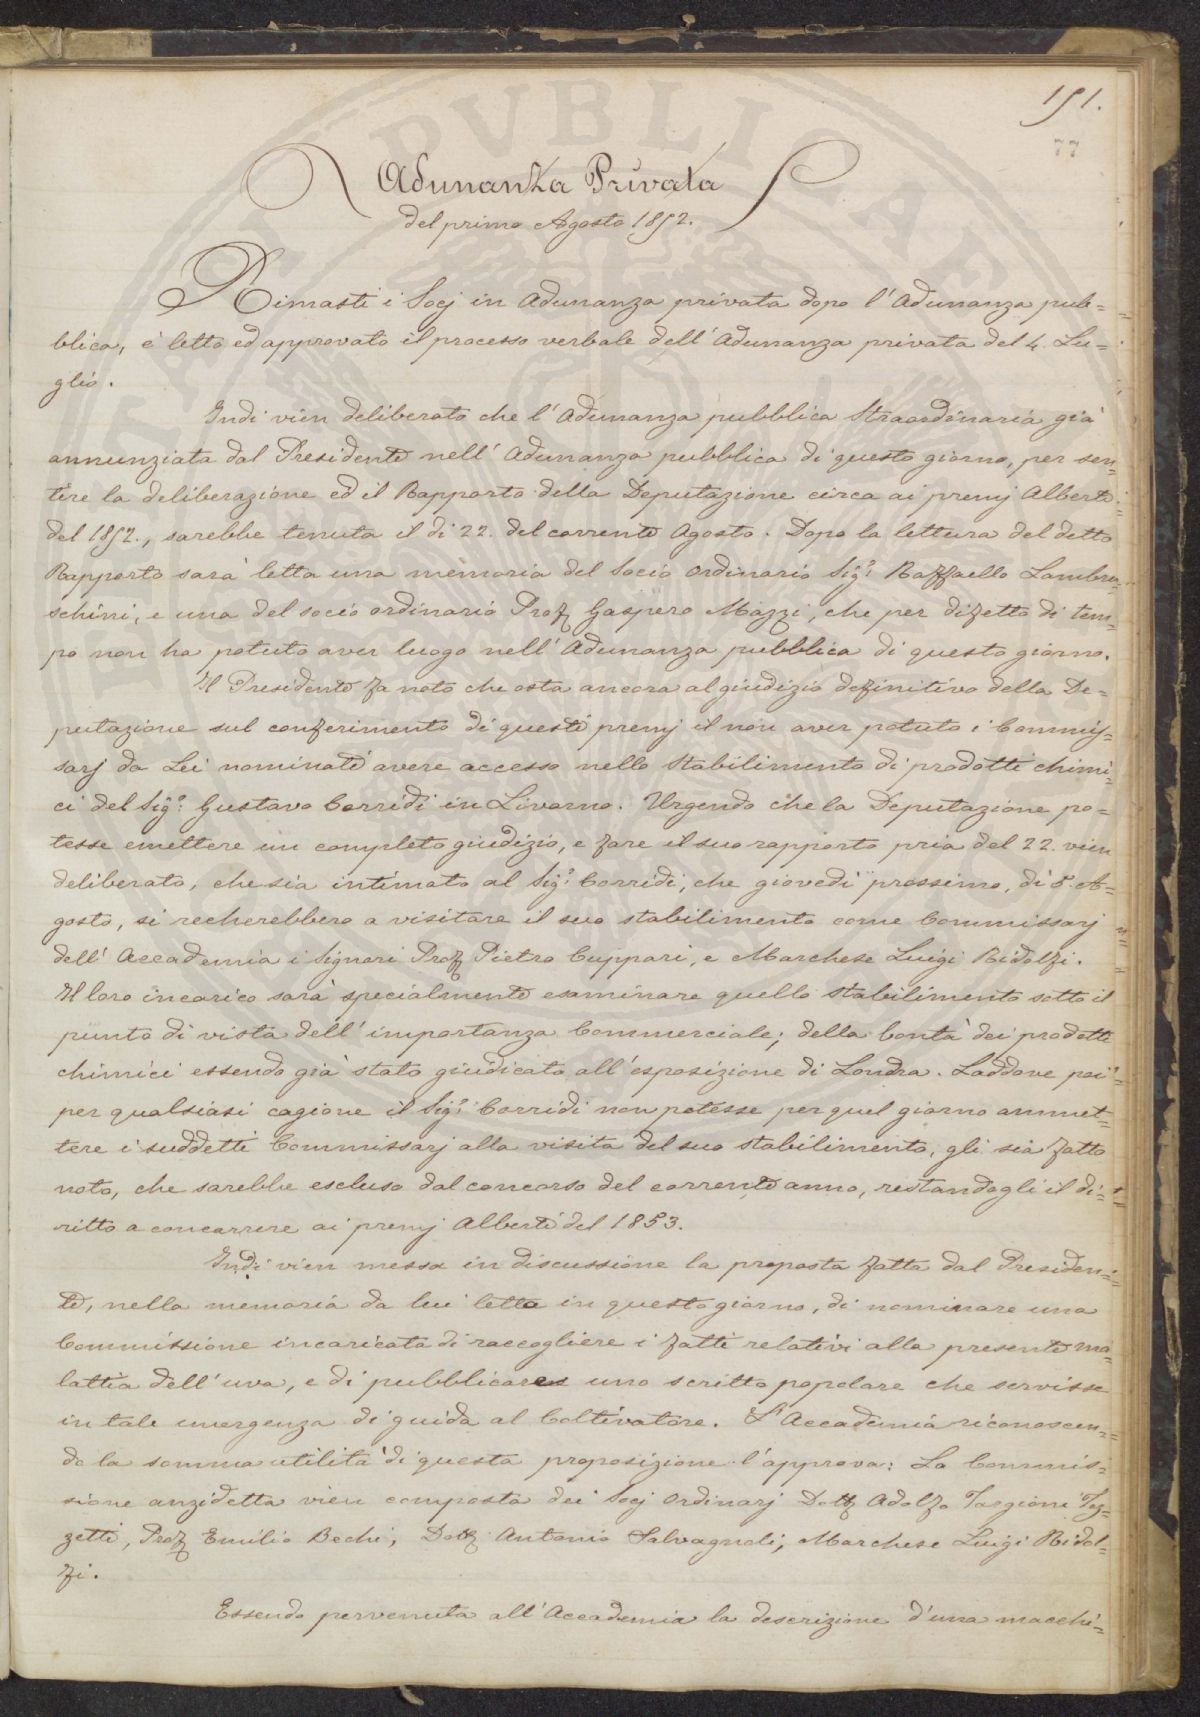 151.
77
Adunanza Privata
del primo Agosto 1852.
Rimasti i Socj in Adunanza privata dopo l'Adunanza pub=
blica, è letto ed approvato il processo verbale dell'Adunanza privata del 4. Lu=
glio.
Indi vien deliberato che l'Adunanza pubblica Straordinaria già
annunziata dal Presidente nell'Adunanza pubblica di questo giorno, per sen=
tire la deliberazione ed il Rapporto della Deputazione circa ai premj Alberti
del 1852., sarebbe tenuta il dì 22. del corrente Agosto. Dopo la lettura del detto
Rapporto sarà letta una memoria del Socio Ordinario Sigr. Raffaello Lambru=
schini, e una del socio ordinario Prof. Gaspero Mazzi, che per difetto di tem=
po non ha potuto aver luogo nell'Adunanza pubblica di questo giorno.
Il Presidente fa noto che osta ancora al giudizio definitivo della De=
putazione sul conferimento di questi premj il non aver potuto i Commis=
sarj da Lei nominati avere accesso nello Stabilimento di prodotti chimi=
ci del Sigr. Gustavo Corridi in Livorno. Urgendo che la Deputazione po=
tesse emettere un completo giudizio, e fare il suo rapporto pria del 22. vien
deliberato, che sia intimato al Sigr. Corridi, che giovedì prossimo, dì 5. A=
gosto, si recherebbero a visitare il suo stabilimento come Commissarj
dell'Accademia i Signori Prof. Pietro Cuppari, e Marchese Luigi Ridolfi.
Il loro incarico sarà specialmente esaminare quello stabilimento sotto il
punto di vista dell'importanza Commerciale; della bontà dei prodotti
chimici essendo già stato giudicato all'esposizione di Londra. Laddove poi
per qualsiasi cagione il Sigr. Corridi non potesse per quel giorno ammet=
tere i suddetti Commissarj alla visita del suo stabilimento, gli sia fatto
noto, che sarebbe escluso dal concorso del corrente anno, restandogli il di=
ritto a concorrere ai premj Alberti del 1853.
Indi vien messa in discussione la proposta fatta dal Presiden=
te, nella memoria da lui letta in questo giorno, di nominare una
Commissione incaricata di raccogliere i fatti relativi alla presente ma=
lattia dell'uva, e di pubblicare uno scritto popolare che servisse
in tale emergenza di guida al Coltivatore. L'Accademia riconoscen=
do la somma utilità di questa proposizione l'approva: La Commis=
sione anzidetta vien composta dei Socj Ordinarj Dott. Adolfo Targioni Toz=
zetti, Prof. Emilio Bechi, Dott. Antonio Salvagnoli, Marchese Luigi Ridol=
fi.
Essendo pervenuta all'Accademia la descrizione d'una macchi=